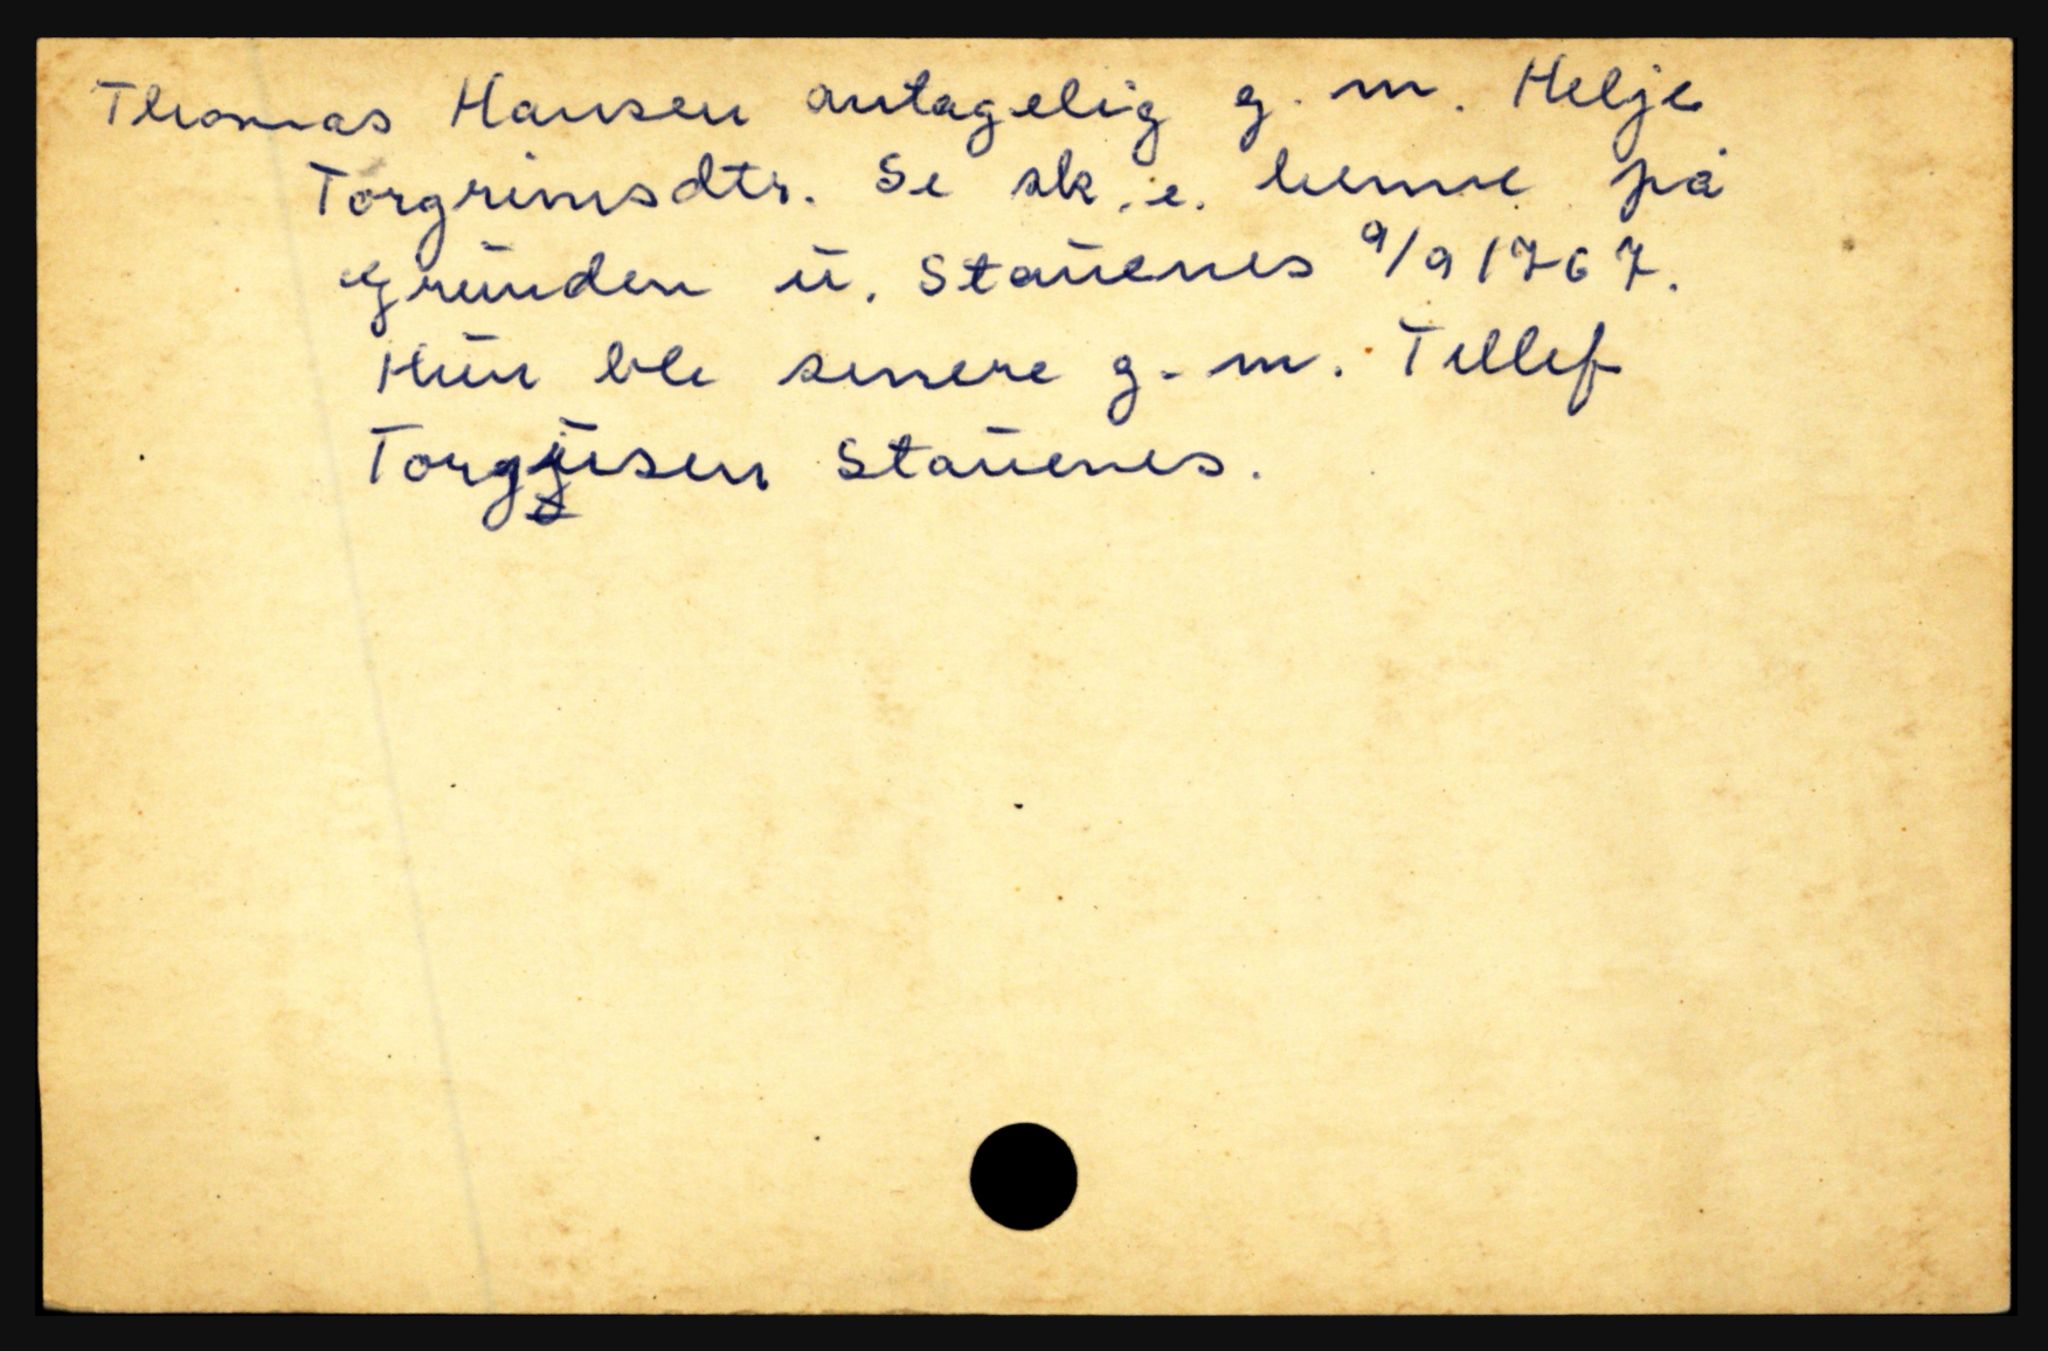 Thomas Hansen antagelig g. m. Helje
Torgrimsdtr. Se sk. e. henne på
Grunden u. Stauenes 9/9 1767.
Hun ble senere g. m. Tellef
Torgjusen Stauenes.